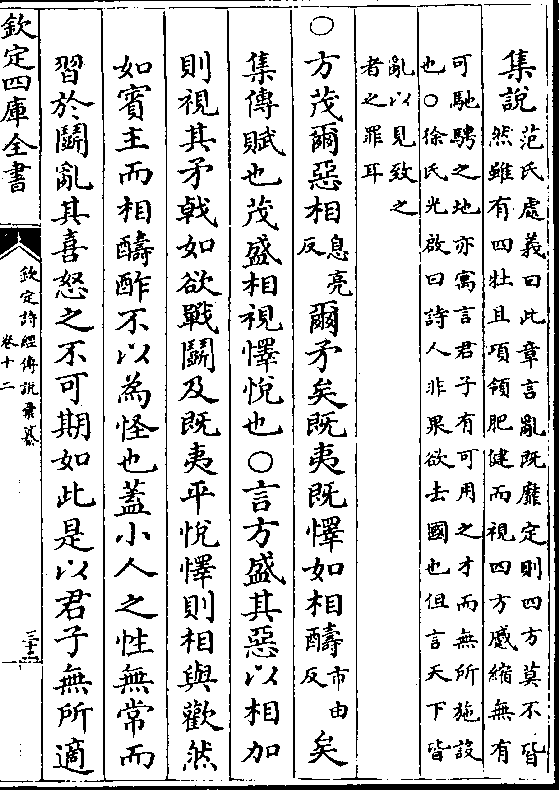 集說范氏處義曰此章言亂既靡定則四方莫不皆
然雖有四牡且項領肥健而視四方蹙縮無有
可馳騁之地亦寓言君子有可用之才而無所施設
也○徐氏光啟曰詩人非果欲去國也但言天下皆
亂以見致之
者之罪耳
○方茂爾惡相息亮反爾矛矣既夷既懌如相醻市由反矣
集傳賦也茂盛相視懌悅也○言方盛其惡以相加
則視其矛戟如欲戰鬭及既夷平悅懌則相與歡然
如賓主而相醻酢不以為怪也蓋小人之性無常而
習於鬭亂其喜怒之不可期如此是以君子無所適
欽定四庫全書
欽定詩經傳說彙纂
卷十二
三十二